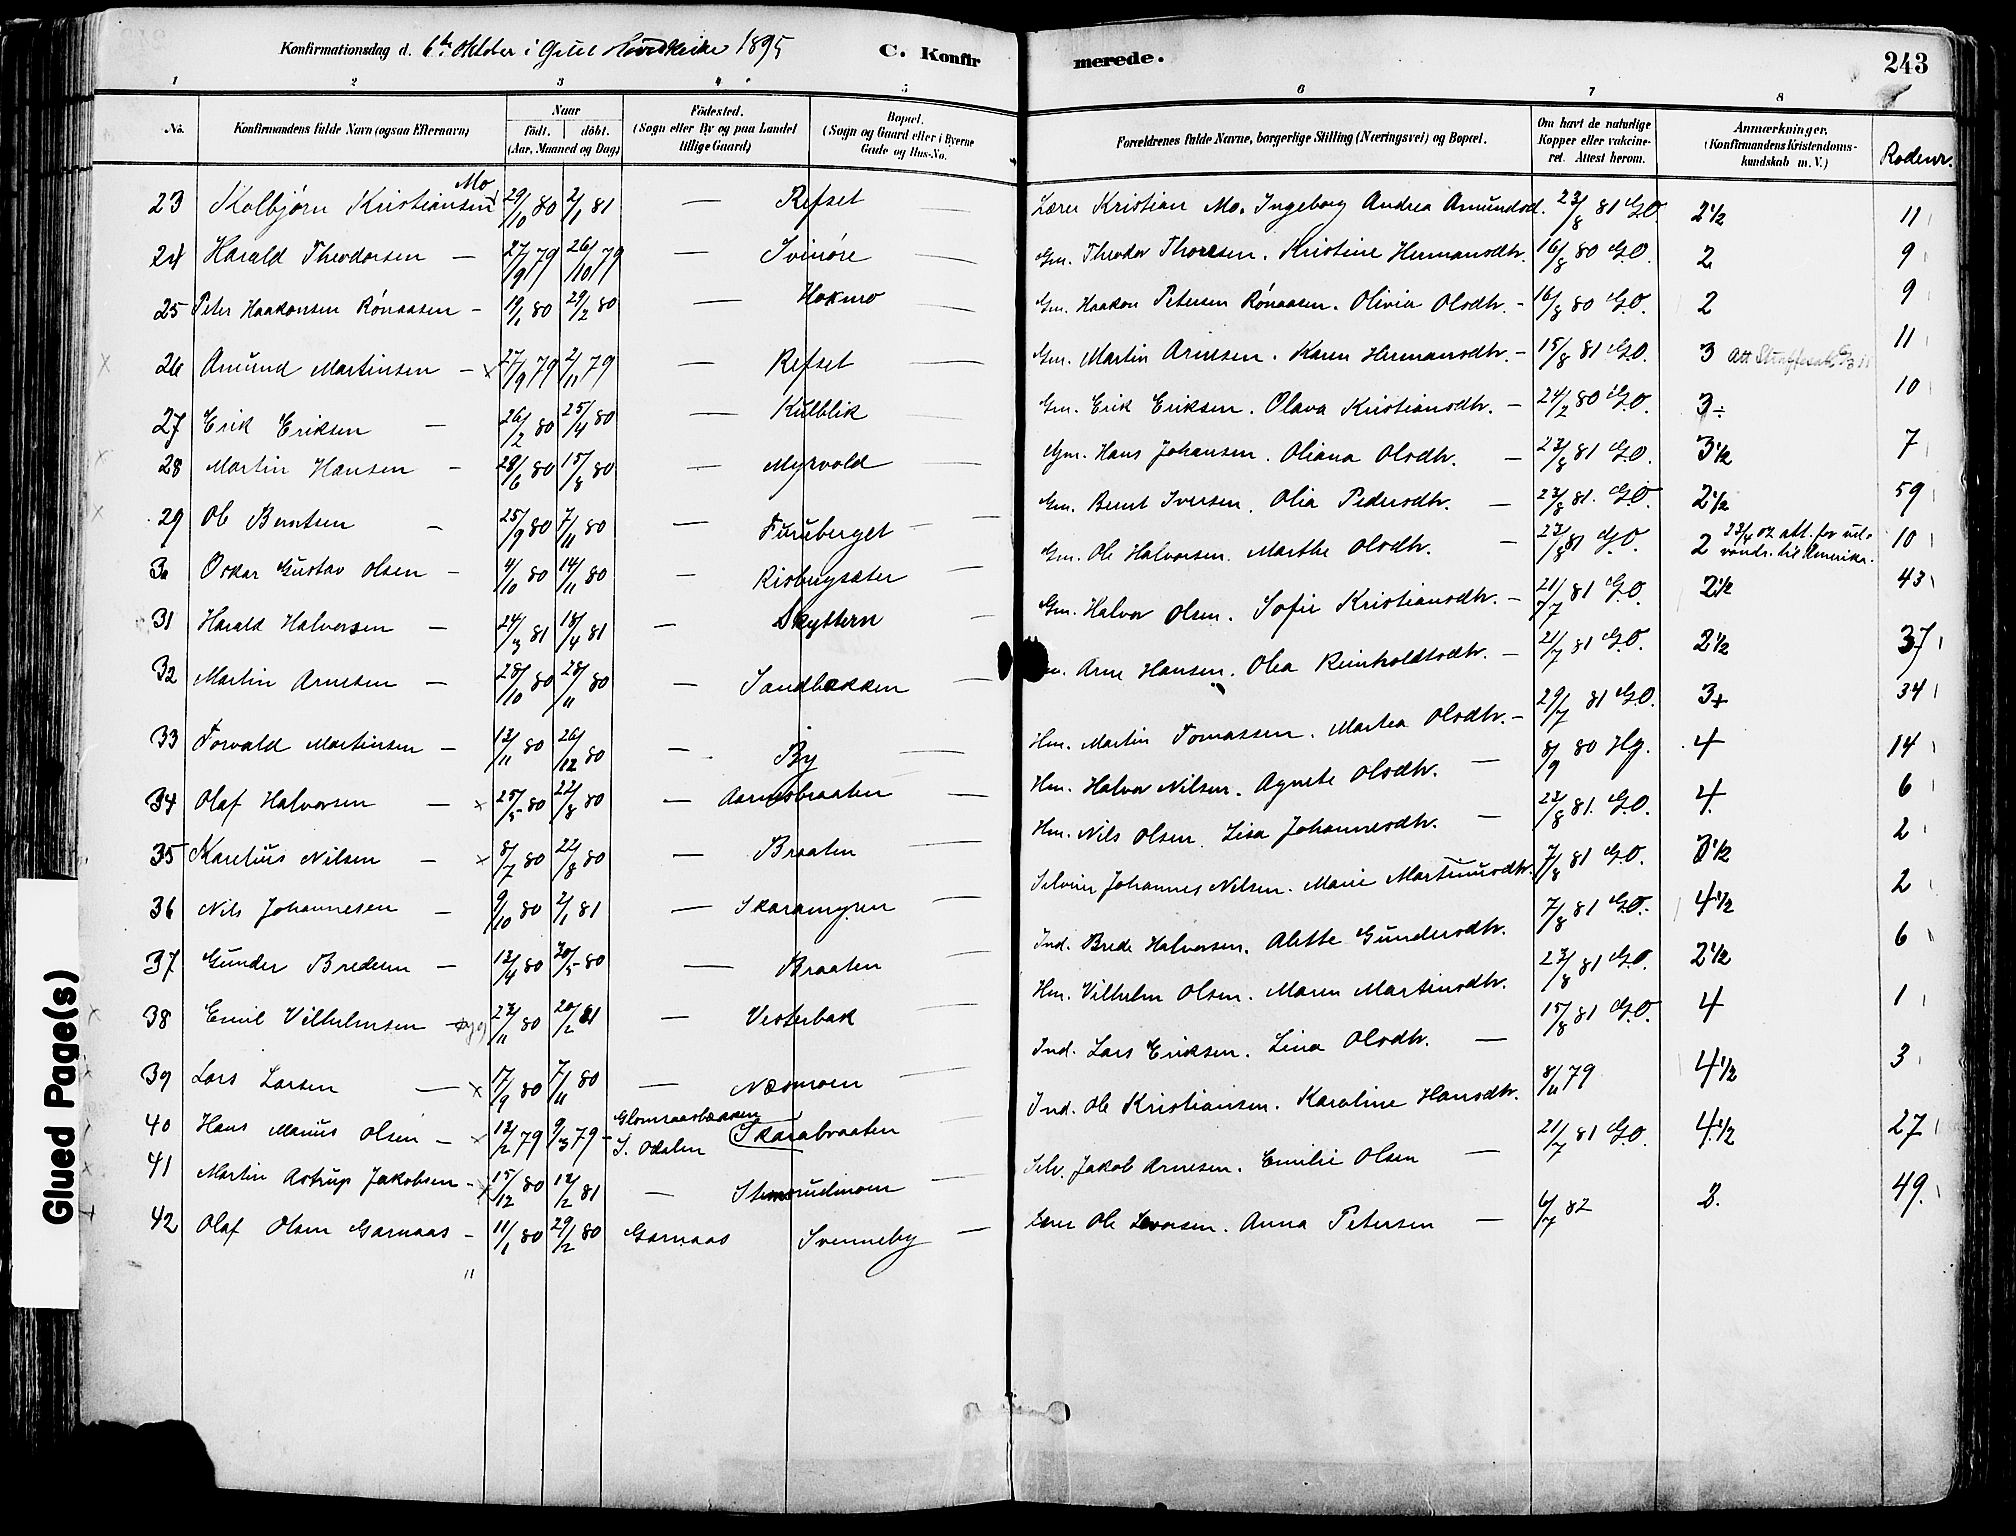 Konfirmationsdag d. 6te Oktober i Grue Hovedkirke 1895 C. Konfir merede. 243
1 2 3 4 5 6 7 8
No. Konfirmandens fulde Navn (ogsaa Efternavn) Naar födt. döbt. (Aar, Maaned og Dag) Födested. (Sogn eller By og paa Landet tillige Gaard) Bopæl. (Sogn og Gaard eller i Byerne Gade og Hus-No. Forældrenes fulde Navne, borgerlige Stilling (Næringsvei) og Bopæl. Om havt de naturlige Kopper eller vakcineret. Attest herom. Anmærkninger. (Konfirmandens Kristendomskundskab m. V.) Rodenr.
23 Kolbjørn Kristiansen Mo 29/10 80 2/1 81 — Refset — Lærer Kristian Mo. Ingeborg Andrea Amundsd. 23/8 81 G.O. 2 1/2 11
24 Harald Theodorsen — 27/9 79 26/10 79 — Svinöre — Gm. Theodor Thoresen. Kristine Hermansdtr. 16/8 80 G.O. 2 9
25 Peter Haakonsen Rónaasen — 19/1 80 29/2 80 — Hokmo — Gm. Haakon Petersen Rónaasen. Olivia Olsdtr. — 16/8 80 G.O. 2 9
26 Amund Martinsen — x 27/9 79 2/11 79 — Refset Gm. Martin Arnesen. Karen Hermansdtr. — 15/8 81 G.O. 3 Att 11
27 Erik Eriksen — 26/2 80 25/4 80 — Kulblik — Gm. Erik Eriksen. Olava Kristiansdtr. — 24/2 80 G.O. 3÷ 10
28 Martin Hansen — 28/6 80 15/8 80 — Myrvold — Gm. Hans Johansen. Oliana Olsdtr. — 23/8 81 G.O. 3 1/2 7
29 Ole Berntsen — 25/9 80 7/11 80 — Furuberget — Gm. Bernt Iversen. Olia Pedersdtr. — 23/8 81. G.O. 2 1/2 59
30 Oskar Gustav Olsen — 4/10 80 14/11 80 — Risbrysæter — Gm. Ole Halvorsen. Marthe Olsdtr. — 23/8 81 G.O. 2 23/4 02 att. for udvandr. til Amerika. 10
31 Harald Halvorsen — 24/3 81 18/4 81 — Skyttern — Gm. Halvor Olsen. Sofie Kristiansdtr. — 21/7 81 G.O. 2 1/2 43
32 Martin Arnesen — 28/10 80 28/11 80 — Sandbakken — Arne Hansen. Olea Reinholdtsdtr. — 21/7 81 G.O. 2 1/2 37
33 Torvald Martinsen — 13/11 80 26/12 80 — By — Hm. Martin Tomassen. Martea Olsdtr. — 29/7 81 G.O. 3+ 34
34 Olaf Halvorsen — x 25/5 80 22/8 80 — Aarnesbraaten — Hm. Halvor Nilsen. Agnete Olsdtr. — 8/9 80 Hg. 4 14
35 Karelius Nilsen — x 8/7 80 22/8 80 — Braaten — Hm. Nils Olsen. Lisa Johannesdtr. — 23/8 81. G.O. 4. 6
36 Nils Johannesen — 9/10 80 2/1 81 — Skaramyren — Selveier Johannes Nilsen. Marie Martinusdtr. 7/8 81 G.O. 3 1/2 2
37 Gunder Bredesen — 12/4 80 30/5 80 — Braaten — Ind. Brede Halvorsen. Alette Gundersdtr. 7/8 81 G.O. 4 1/2 2
38 Emil Vilhelmsen — 23/11 80 20/2 81 — Vesterbak — Hm. Vilhelm Olsen. Maren Martinsdtr. 23/8 81 G.O. 2 1/2 6
39 Lars Larsen — x 17/9 80 7/11 80 — Næsmoen — Ind. Lars Eriksen. Lina Olsdtr. — 15/8 81 G.O. 4 1
40 Hans Marius Olsen — x 12/2 79 9/3 79 — Glomraasbakken S. Odalen Skarabraaten — Ind. Ole Kristiansen. Karoline Hansdtr. 8/11 79 4 1/2 3
41 Martin Astrup Jakobsen — x 15/12 80 12/2 81 — Stemsrudmoen — Selv. Jakob Arnesen. Emilie Olsen — 21/7 81 G.O. 4 1/2 27
42 Olaf Olsen Garnaas — 11/1 80 29/2 80 Garnaas Svenneby — Lærer Ole Levorsen. Anna Petersen — 6/7 82 3. 49.
"
Glued Page(s)